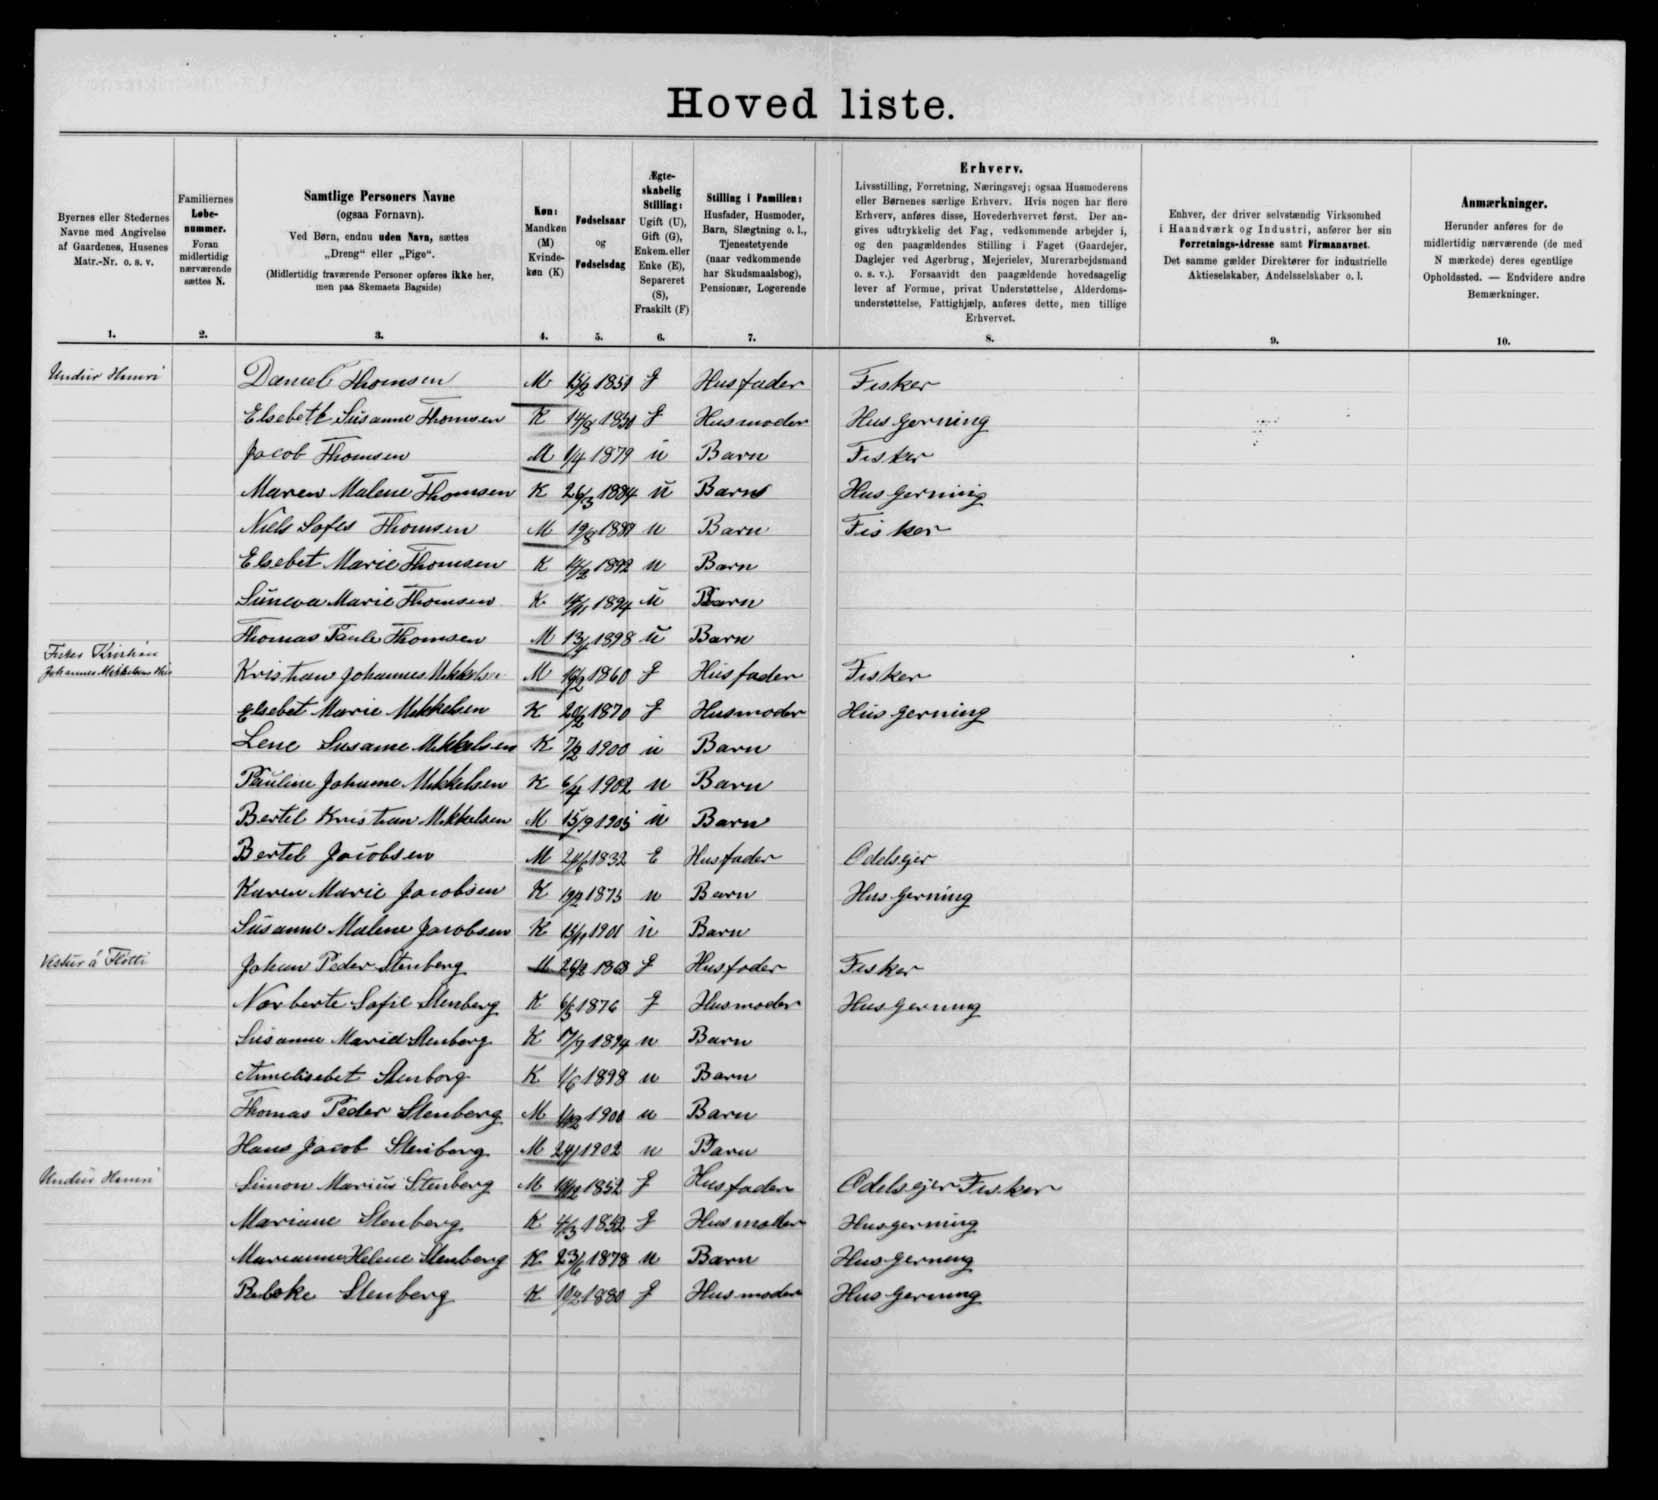 Hoved liste.
Byernes eller Stedernes Navne med Angivelse af Gaardenes, Husenes Matr.-Nr. o. s. v.
1.
Familiernes Løbe-nummer. Foran midlertidig nærværende sættes N.
2.
Samtlige Personers Navne
(ogsaa Fornavn).
Ved Børn, endnu uden Navn, sættes
„Dreng“ eller „Pige“.
(Midlertidig fraværende Personer opføres ikke her,
men paa Skemaets Bagside)
3.
Køn:
Mandkøn (M)
Kvinde-køn (K)
4.
Fødselsaar
og
Fødselsdag
5.
Ægte-skabelig Stilling:
Ugift (U), Gift (G), Enkem. eller Enke (E), Separeret (S), Fraskilt (F)
6.
Stilling i Familien:
Husfader, Husmoder, Barn, Slægtning o. l., Tjenestetyende (naar vedkommende har Skudsmaalsbog), Pensionær, Logerende
7.
Erhverv.
Livsstilling, Forretning, Næringsvej; ogsaa Husmoderens
eller Børnenes særlige Erhverv. Hvis nogen har flere
Erhverv, anføres disse, Hovederhvervet først. Der an-
gives udtrykkelig det Fag, vedkommende arbejder i,
og den paagældendes Stilling i Faget (Gaardejer,
Daglejer ved Agerbrug, Mejerielev, Murerarbejdsmand
o. s. v.). Forsaavidt den paagældende hovedsagelig
lever af Formue, privat Understøttelse, Alderdoms-
understøttelse, Fattighjælp, anføres dette, men tillige
Erhvervet.
8.
Enhver, der driver selvstændig Virksomhed
i Haandværk og Industri, anfører her sin
Forretnings-Adresse samt Firmanavnet.
Det samme gælder Direktører for industrielle
Aktieselskaber, Andelsselskaber o. l.
9.
Anmærkninger.
Herunder anføres for de
midlertidig nærværende (de med
N mærkede) deres egentlige
Opholdssted. — Endvidere andre
Bemærkninger.
10.
Daniel Thomsen M 1851 G Husfader Fisker
Elsebeth Susanne Thomsen K 14/8 1851 G Husmoder Husgerning
Jacob Thomsen M 1/4 1879 u Barn Fisker
Maren Malene Thomsen K 26/3 1884 u Barn Husgerning
Niels Thomsen M 19/8 u Barn Fisker
Elsebet Marie Thomsen K 1892 u Barn
Suneva Marie Thomsen K 1894 u Barn
Thomas Paule Thomsen M 1898 u Barn
Johannes Mikkelsens Hus Kristian Johannes Mikkelsen M 1860 G Husfader Fisker
Elsebet Marie Mikkelsen K 1870 G Husmoder Husgerning
Lene Susanne Mikkelsen K 1900 u Barn
Pauline Johanne Mikkelsen K 6/4 1902 u Barn
Bertel Kristian Mikkelsen M 15/9 1905 u Barn
Bertel Jacobsen M 1832 E Husfader Odelsejer
Karen Marie Jacobsen K 1875 u Barn Husgerning
Susanne Malene Jacobsen K 15/11 1901 u Barn
Johan Peder Stenberg M G Husfader Fisker
Norberte Sofie Stenberg K 6/3 1876 G Husmoder Husgerning
Susanne Marie Stenberg K 17/9 1894 u Barn
Annelisebet Stenberg K 1/6 1898 u Barn
Thomas Peder Stenberg M u Barn
Hans Jacob Stenberg M 1902 u Barn
Simon Marius Stenberg M 1852 G Husfader Odelsejer Fisker
Mariane Stenberg K 1852 G Husmoder Husgerning
Marianne Helene Stenberg K 23/6 1878 u Barn Husgerning
Stenberg K 1880 G Husmoder Husgerning